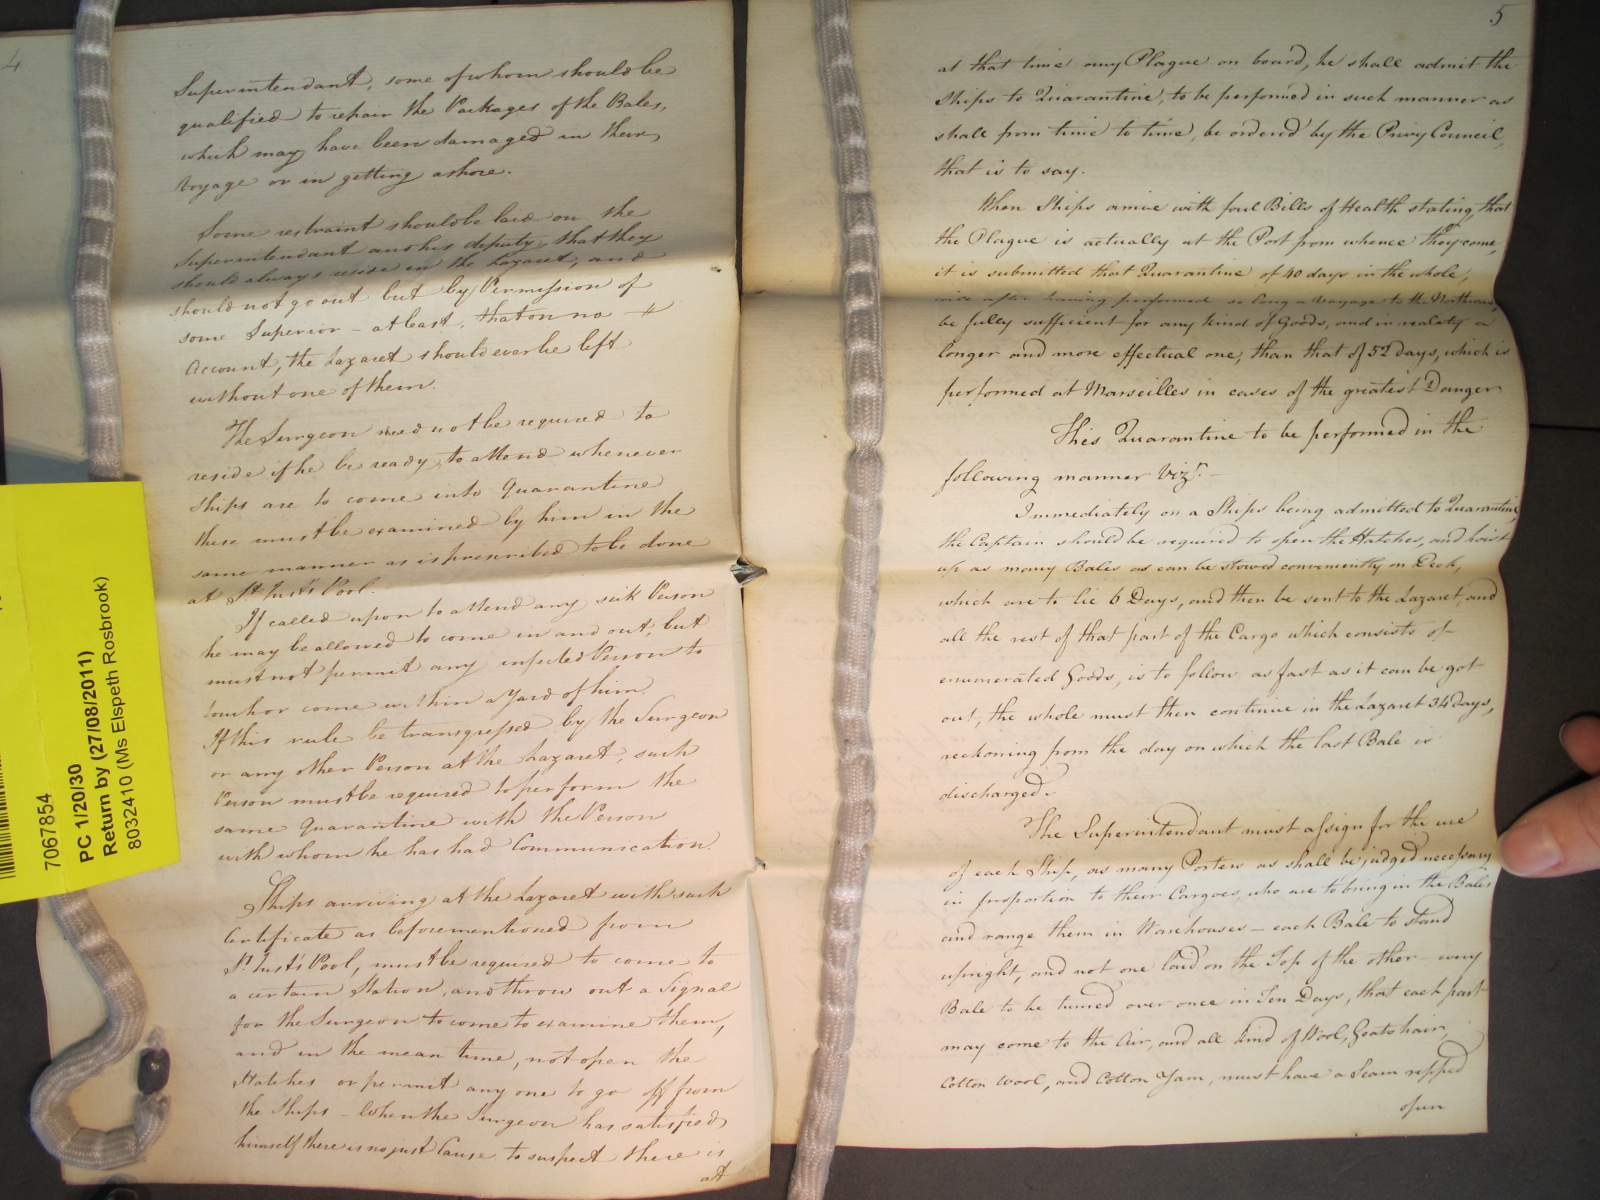 4
Superintendant, some of whom should be
qualified to repair the Packages of the Bales,
which may have been damaged in their
Voyage or in getting ashore.
Some restraint should be laid on the
Superintendant and his deputy, that they
should always reside in the Lazaret, and
should not go out but by Permission of
some Superior – at least, that on no
Account, the Lazaret should ever be left
without one of them.
The Surgeon need not be required to
reside if he be ready to attend whenever
Ships are to come into Quarantine
these must be examined by him in the
same manner as is prescribed to be done
at St. Just's Pool.
If called upon to attend any sick Person
he may be allowed to come in and out, but
must not permit any infected Person to
touch or come within a Yard of him.
If this rule be transgressed by the Surgeon
or any other Person at the Lazaret, such
Person must be required to perform the
same Quarantine with the Person
with whom he has had Communication.
Ships arriving at the Lazaret with such
Certificate as beforementioned from
St. Just's Pool, must be required to come to
a certain Station, and throw out a Signal
for the Surgeon to come to examine them,
and in the mean time, not open the
Hatches or permit any one to go off from
the Ships – When the Surgeon has satisfied
himself there is no just Cause to suspect there is
at
5
at that time any Plague on board, he shall admit the
Ships to Quarantine, to be performed in such manner as
shall from time to time, be ordered by the Privy Council,
that is to say.
When Ships arrive with foul Bills of Health stating that
the Plague is actually at the Port from whence they come,
it is submitted that Quarantine of 40 days in the whole,
after having performed so long a Voyage to the Northward,
be fully sufficient for any kind of Goods, and in reality a
longer and more effectual one, than that of 52 days, which is
performed at Marseilles in cases of the greatest Danger
This Quarantine to be performed in the
following manner Vizt. –
Immediately on a Ships being admitted to Quarantine,
the Captain should be required to open the Hatches, and hoist
up as many Bales as can be stowed conveniently on Deck,
which are to lie 6 Days, and then be sent to the Lazaret, and
all the rest of that part of the Cargo which consists of
enumerated Goods, is to follow as fast as it can be got
out, the whole must then continue in the Lazaret 34 days,
reckoning from the day on which the last Bale is
discharged.
The Superintendant must assign for the use
of each Ship, as many Porters as shall be judged necessary
in proportion to their Cargoes, who are to bring in the Bales
and range them in Warehouses – each Bale to stand
upright, and not one laid on the Top of the other – every
Bale to be turned over once in Ten Days, that each part
may come to the Air, and all kind of Wool, Goatshair,
Cotton Wool, and Cotton Yarn, must have a Seam ripped
open
7067854
PC 1/20/30
Return by (27/08/2011)
8032410 (Ms Elspeth Rosbrook)